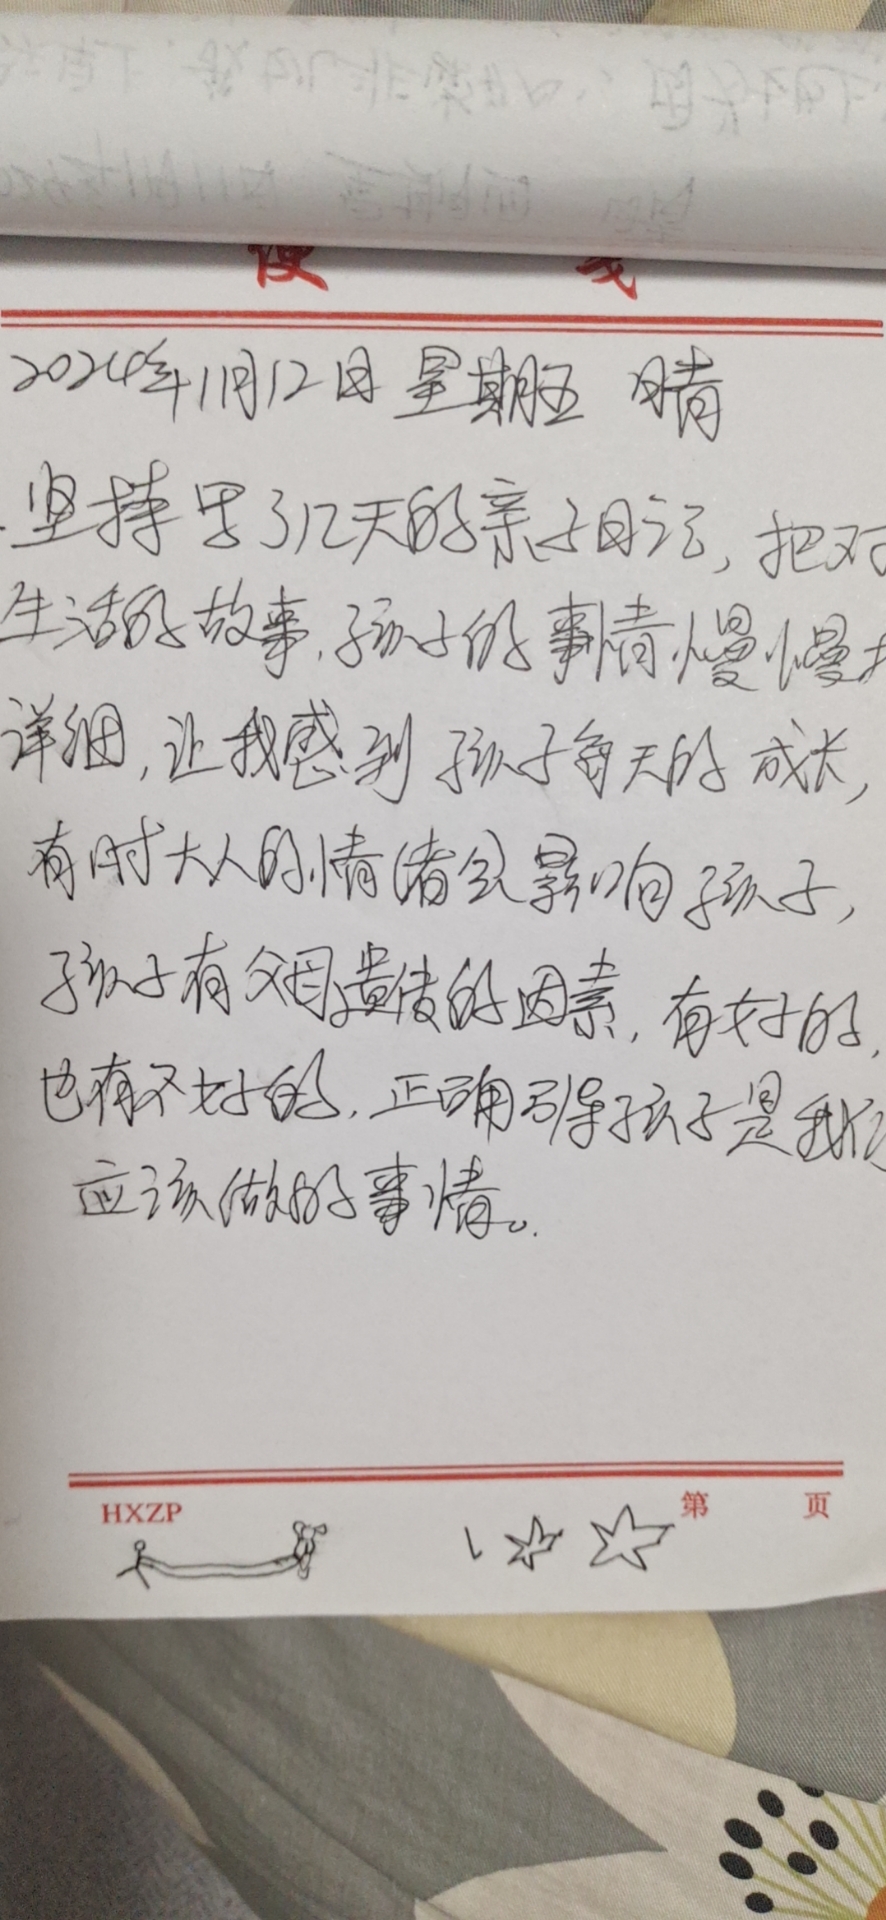 便 笺
2024年11月12日 星期五 晴
坚持写了几天的亲子日记,把对
生活的故事,孩子的事情慢慢
详细,让我感到孩子每天的成长,
有时大人的情绪会影响孩子,
孩子有父母遗传的因素,有好的,
也有不好的,正确引导孩子是我们
应该做的事情。
HXZP 第 页